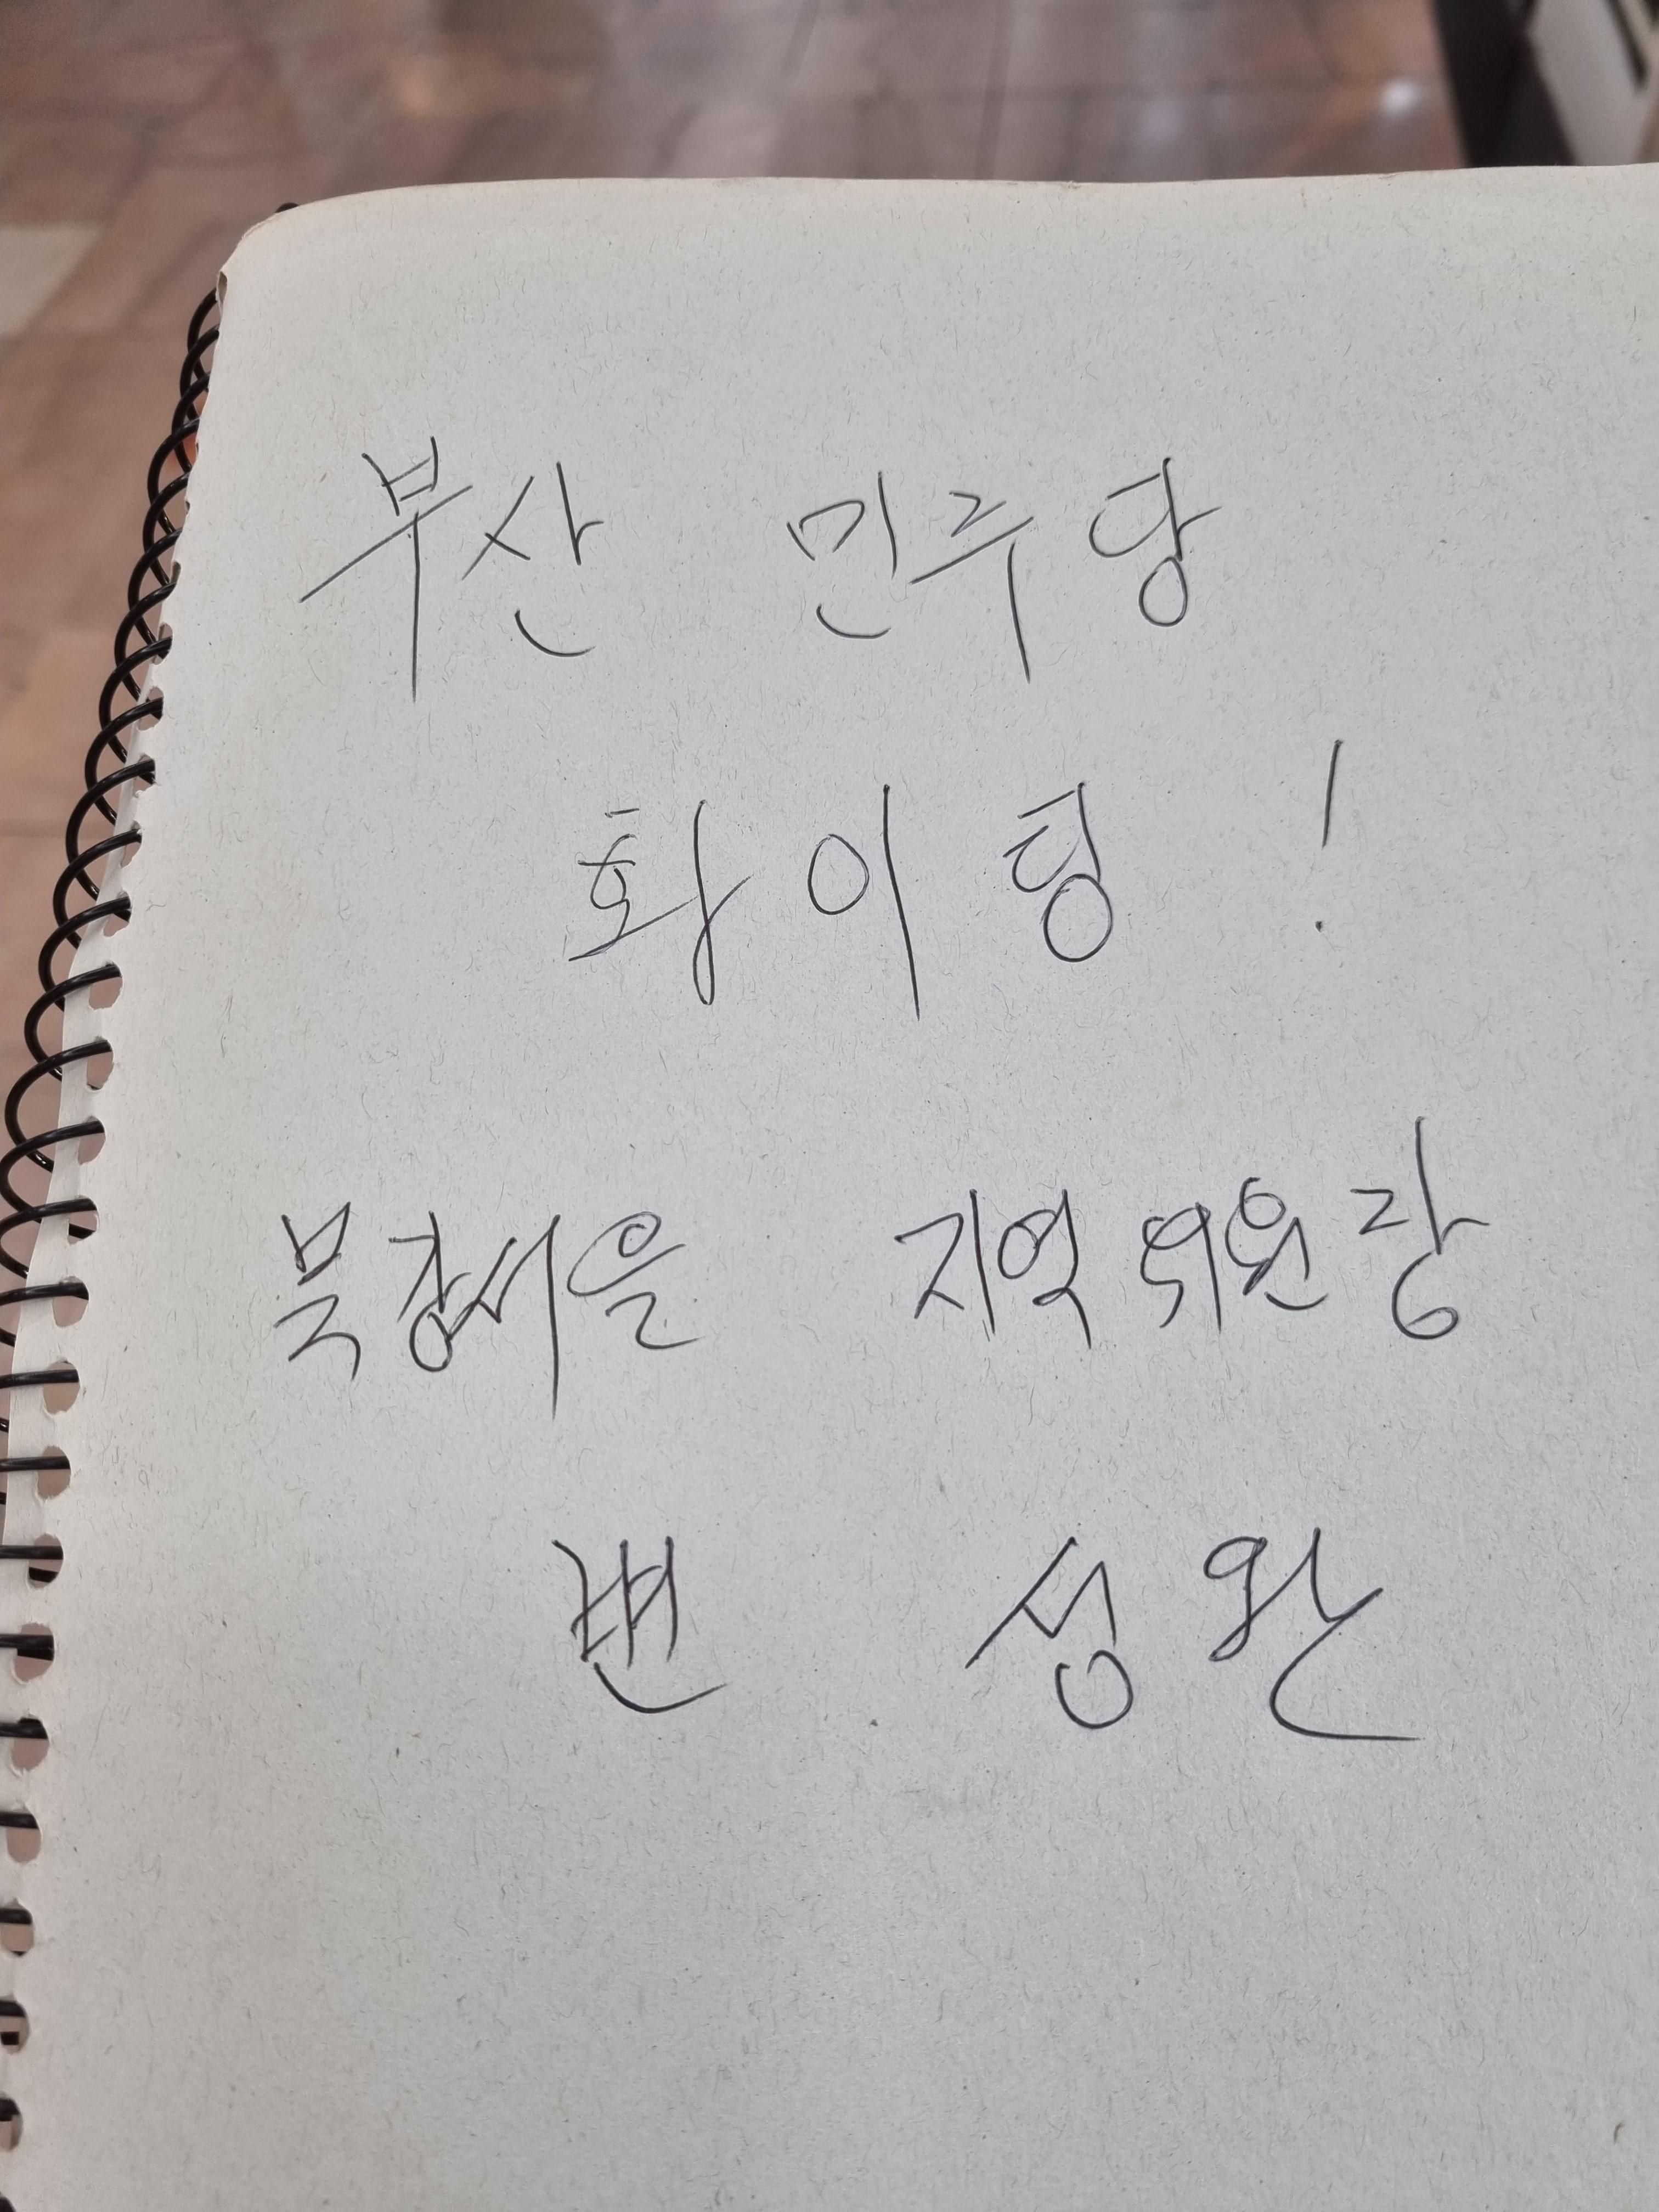 부산 민주당
화이팅 !
북강서을 지역위원장
변 성완